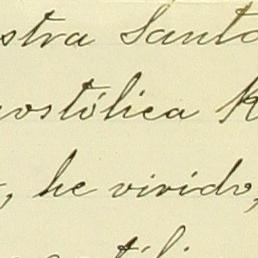 stra Santa
postólica R
, he vivido,